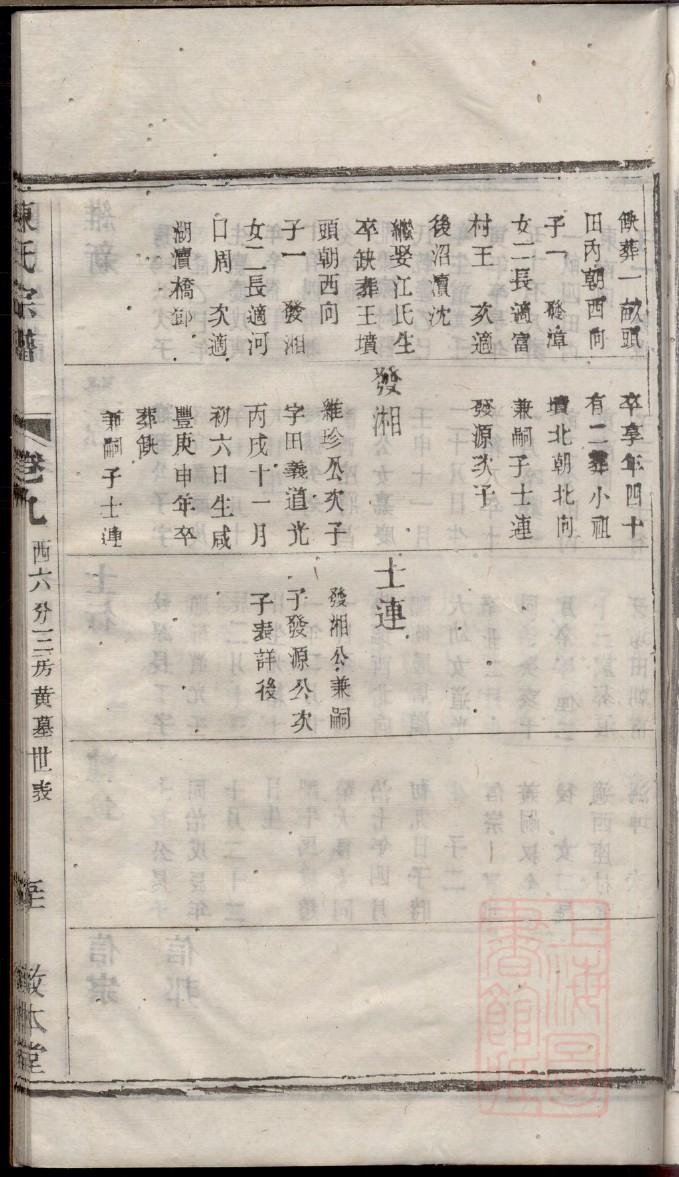 缺葬一畝頭
田內朝西向
子一 發漳
女二長適富
村王 次適
後沼瀆沈
繼娶江氏生
卒缺葬王墳
頭朝西向
子一 發湘
女二長適河
口周 次適
湖瀆橋邵
卒享年四十
有二葬小祖
墳北朝北向
兼嗣子士連
發源次子
發湘
維珍公次子
字田義道光
丙戌十一月
初六日生咸
豐庚申年卒
葬缺
兼嗣子士連
士連
發湘公兼嗣
子發源公次
子表詳後
陳氏宗譜
卷九
西六分三房黃墓世表
敦本堂
上海圖書館藏